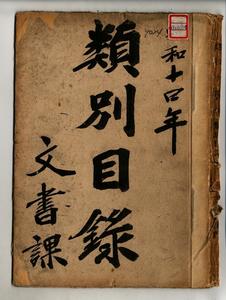 和十口年
類別目錄
文書課